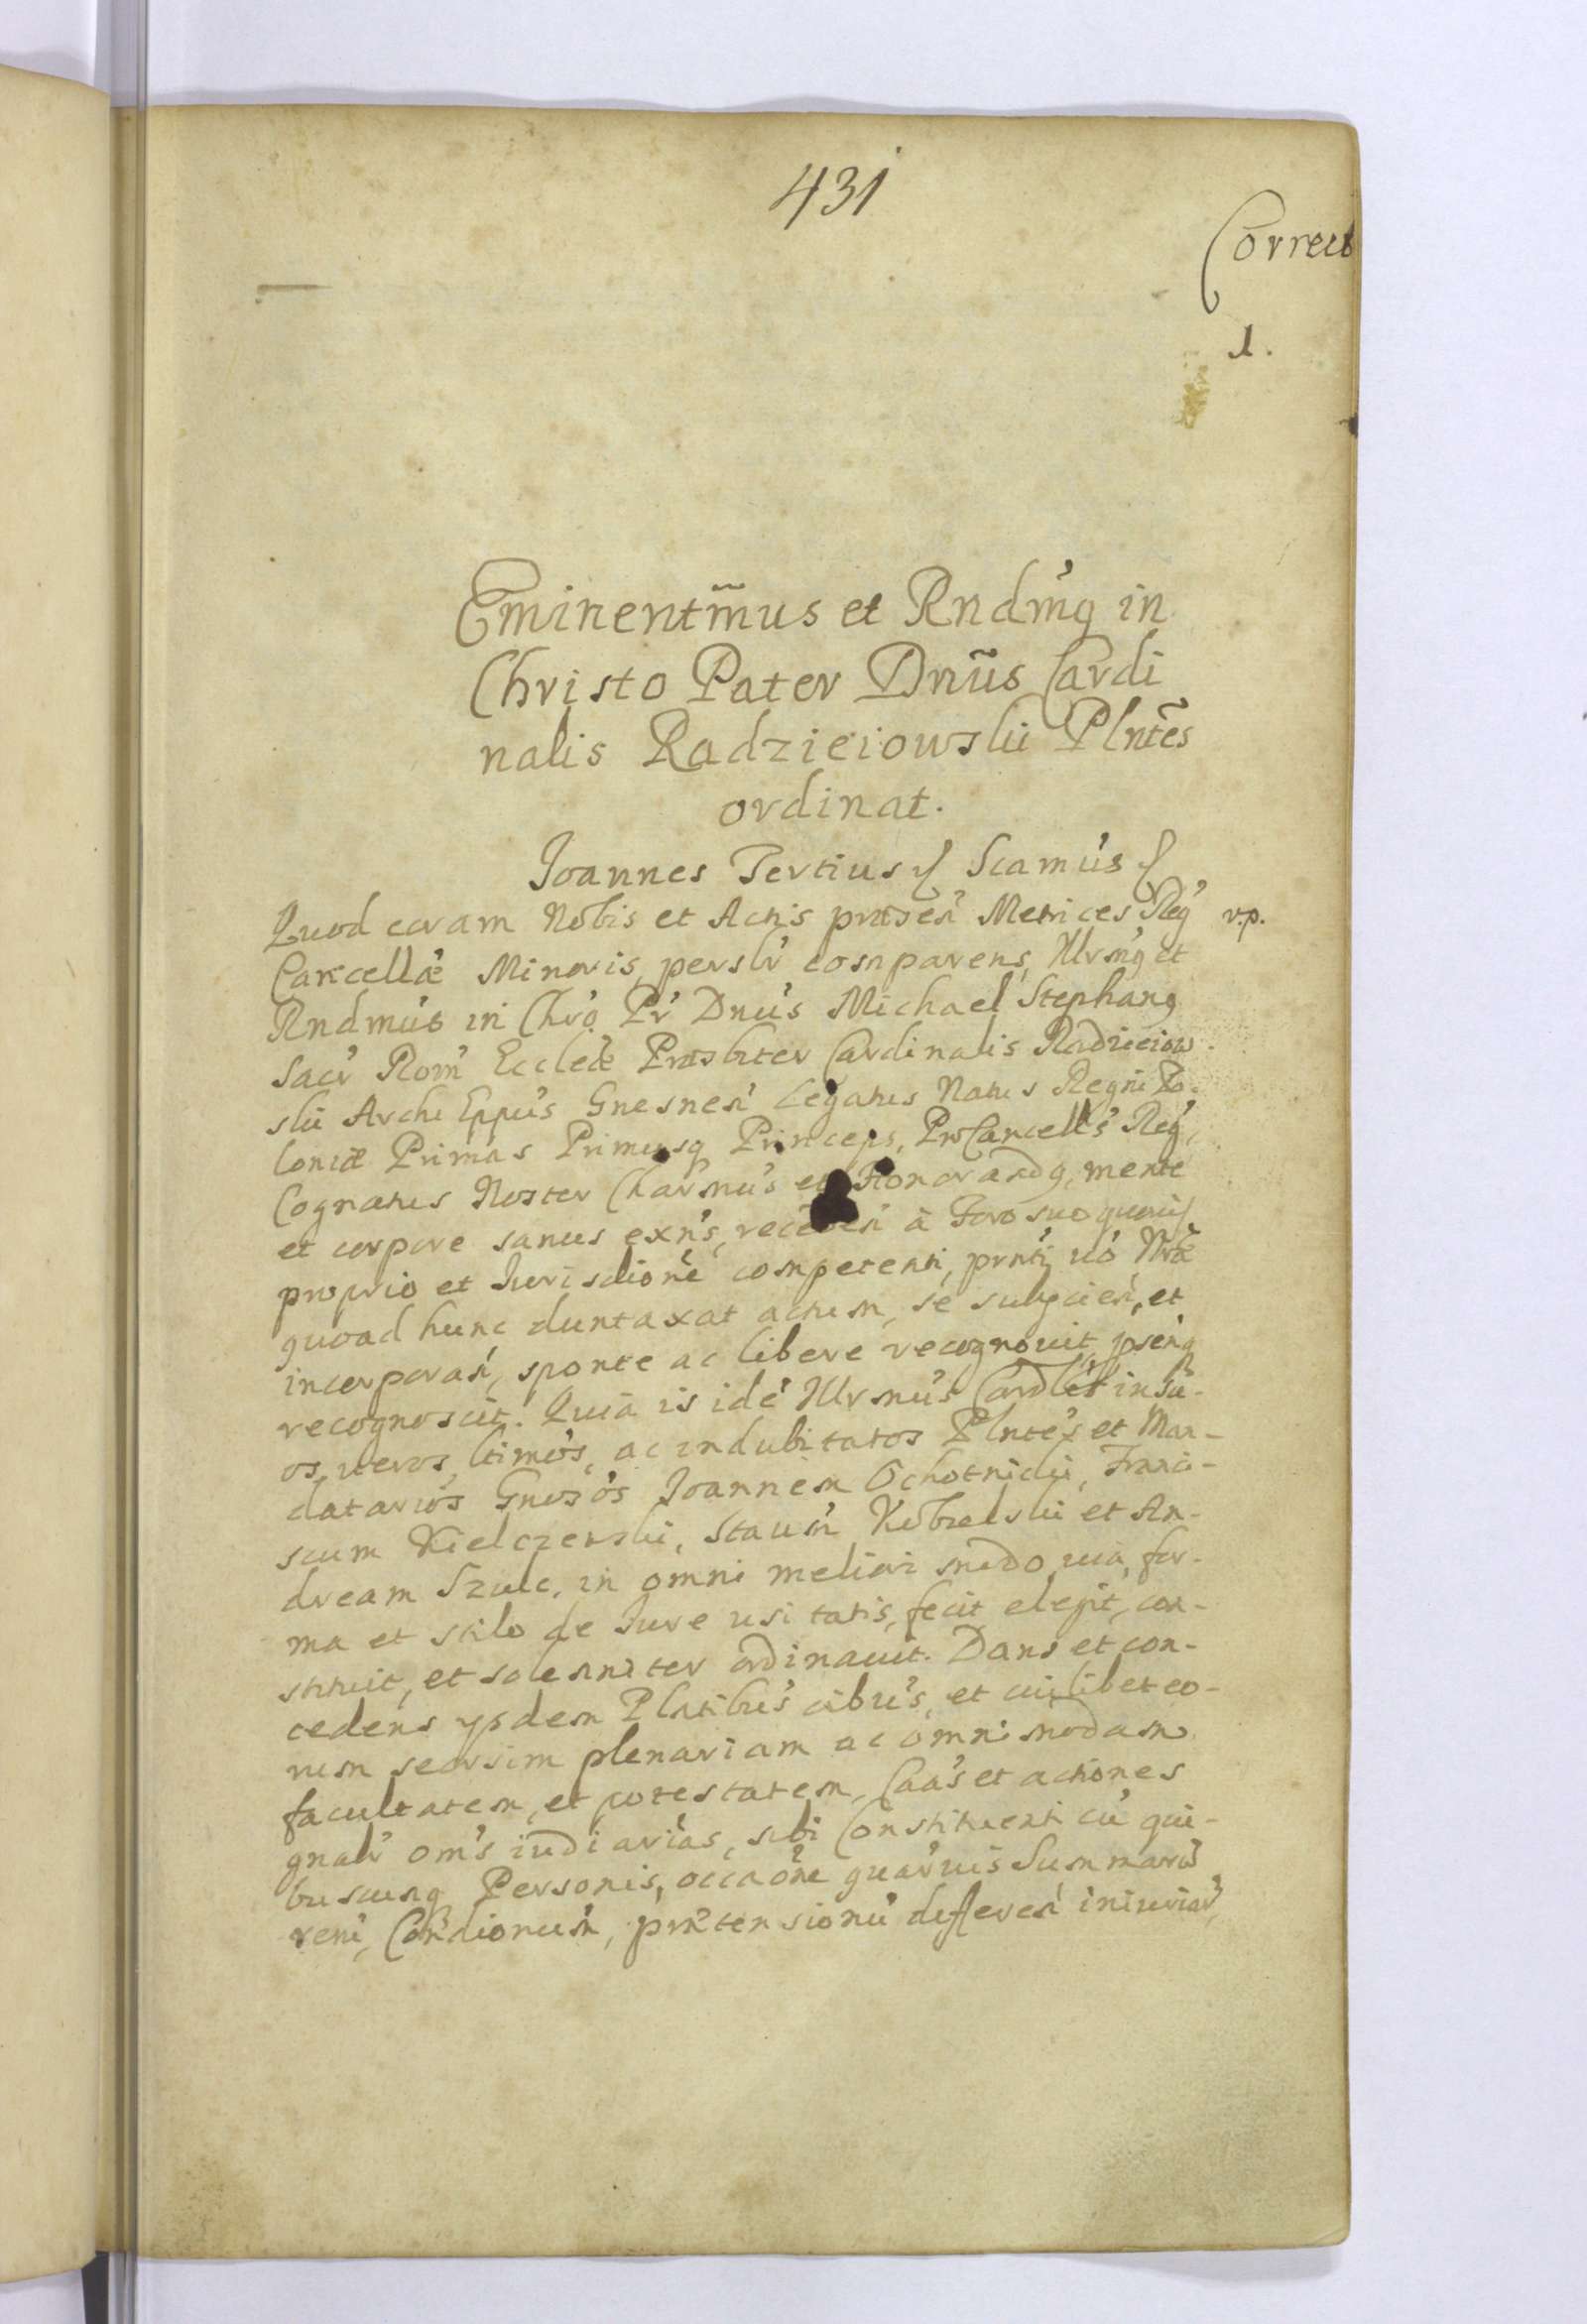 431
Correct
1.
Eminentm̃us et Rndm̃q in
Christo Pater Dnũs Cardi
nalis Radzieiowski Plntẽs
ordinat.
Joannes Tertius Scamús
Quod coram Nobis et Actis præsen' Metrices Reg' v.p.
Cancellæ Minoris, perslr' comparens, Illrm'q et
Rndmús in Chr'o Pr' Dnu's Michael Stephanq
Sacr' Rom' Eccleæ Præsbiter Cardinalis Radzieiow
ski Archi Eppu's Gnesnen' Legatus Natus Regni Po-
loniæ Primas Primusq Princeps, ProCancell's Reg',
Cognatus Noster Char'mu's et Honorandq, mente
et corpore sanus exn's, receden' à Foro suo quouis
proprio et Jurisdione' competenti, prnti uo' Nræ
quoad hunc duntaxat actum, se subijcien', et
incorporan', sponte ac libere recognouit, ipsenq
recognoscit. Quia is ide' Illrmu's Cardlis in su-
os, ueros, ltimo's, ac indubitatos Plnte's et Man-
datarios Gneros'os Joannem Ochotnicki, Franci-
scum Kielczewski, Stausn' Kobielski et An-
dream Szulc, in omni meliori modo, uia, for-
ma et stilo de Jure usitatis, fecit elegit, con-
stituit, et solemniter ordinauit. Dans et con-
cedens ijsdem Plntibu's oibu's, et cuilibet eo-
rum seorsim plenariam ac omnimodam
facultatem, et potestatem, Caa's et actiones
gnalr' om's iudiarias, sibi Constituenti cu' qui-
buscunq Personis, occaone quar'uis Summaru'
reru', Condionum', prætensionu' defleren' iniuriar',